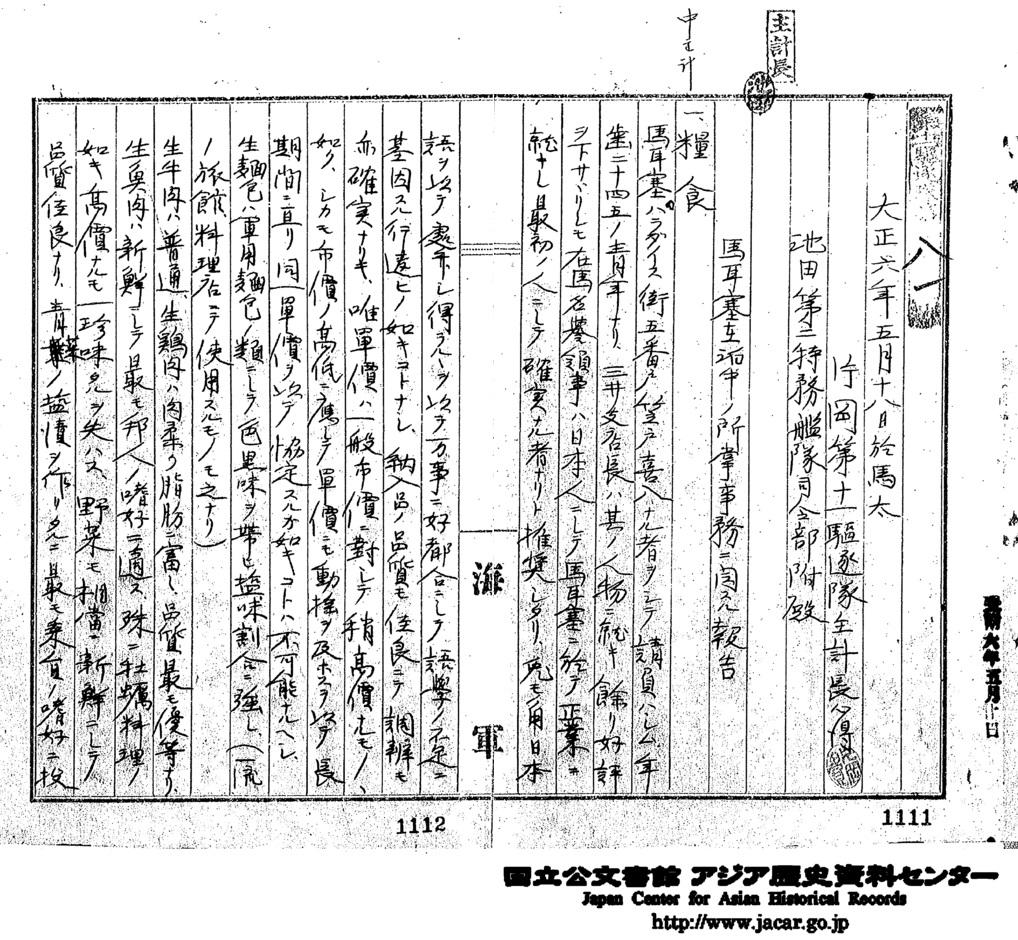 主計長
中主計
第十一驅逐隊
八一
大正六年五月十八日於馬太
片岡第十一驅逐隊主計長心得
池田第二特務艦隊司令部附殿
馬耳塞在泊中ノ所掌事務ニ関スル報告
一、糧食
馬耳塞パラダイス街五番ニ笠戸喜八ナル者ヲシテ請負ハシム年
歳二十四五ノ青年ナリ、三井支店長ハ其ノ人物ニ就キ餘リ好評
ヲ下サヾリシモ在馬名誉領事ハ日本人ニシテ馬耳塞ニ於テ正業ニ
就キシ最初ノ人ニシテ確実ナル者ナリト推奨シタリ、兎モ角日本
海軍
語ヲ以テ處弁シ得ラルヽヲ以テ万事ニ好都合ニシテ語學ノ不足ニ
基因スル行違ヒノ如キコトナシ、納入品ノ品質モ佳良ニテ調辨モ
亦確実ナリキ、唯單價ハ一般市價ニ對シテ稍高價ナルモノヽ
如ク、シカモ市價ノ高低ニ應シテ單價ニモ動揺ヲ及ホスヲ以テ長
期間ニ亘リ同一單價ヲ以テ協定スルカ如キコトハ不可能ナルヘシ、
生麺包ハ軍用麺包ノ類ニシテ色黒味ヲ帯ヒ塩味割合ニ強シ、(一流
ノ旅館、料理店ニテ使用スルモノモ之ナリ)
生牛肉ハ普通、生鶏肉ハ肉柔ク脂肪ニ富ミ品質最モ優等ナリ、
生魚肉ハ新鮮ニシテ最モ邦人ノ嗜好ニ適ス、殊ニ牡蠣料理ノ
如キ高價ナルモ一珍味タルヲ失ハス、野菜モ相當ニ新鮮ニシテ
品質佳良ナリ、青菜ノ塩漬ヲ作リタルニ最モ乗員ノ嗜好ニ投
六年五月
1112
1111
国立公文書館 アジア歴史資料センター
Japan Center for Asian Historical Records
http://www.jacar.go.jp